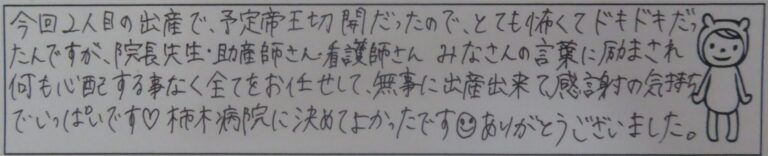 今回2人目の出産で、予定帝王切開だったので、とても怖くてドキドキだっ
たんですが、院長先生・助産師さん・看護師さん みなさんの言葉に励まされ
何も心配する事なく全てをお任せして、無事に出産出来て、感謝の気持ち
でいっぱいです♡ 柿木病院に決めてよかったです☺ ありがとうございました。